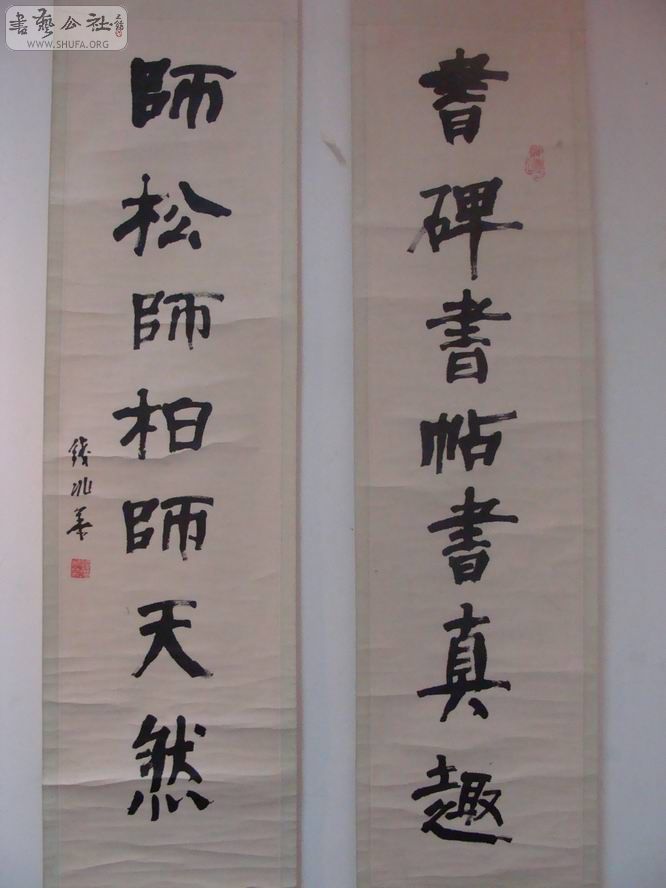 書碑書帖書真趣
師松師柏師天然
書藝公社
WWW.SHUFA.ORG